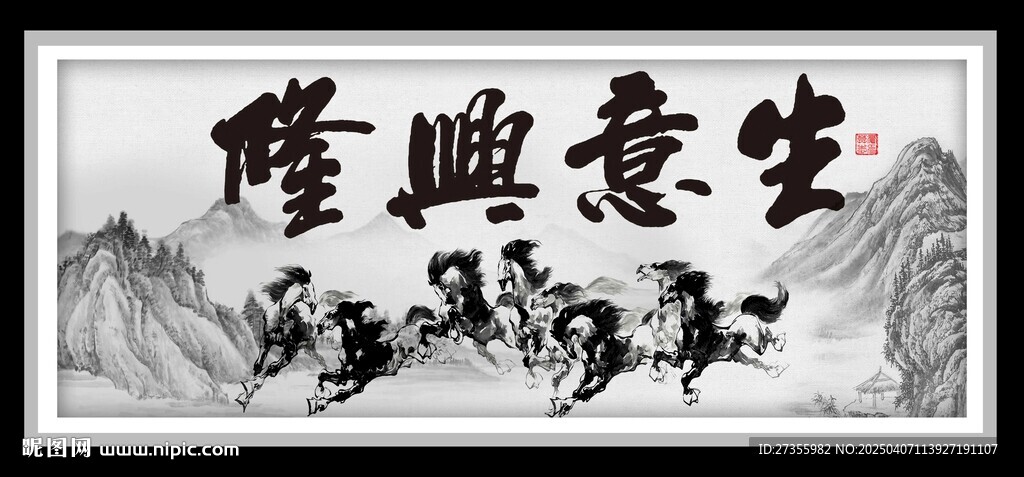 生意興隆
昵图网 www.nipic.com
ID:27355982 NO:20250407113927191107